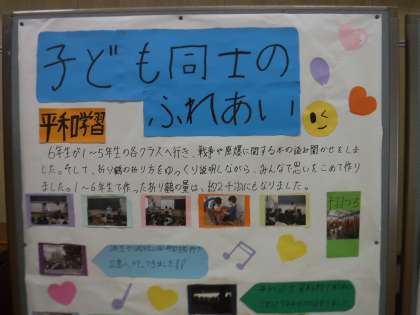 子ども同士の
ふれあい
平和学習
6年生が1～5年生の各クラスへ行き、戦争や原爆に関する本の読み聞かせをしま
した。そして、折り鶴の折り方をゆっくり説明しながら、みんなで思いをこめて作り
ました。1～6年生で作った折り鶴の量は、約2千羽にもなりました。